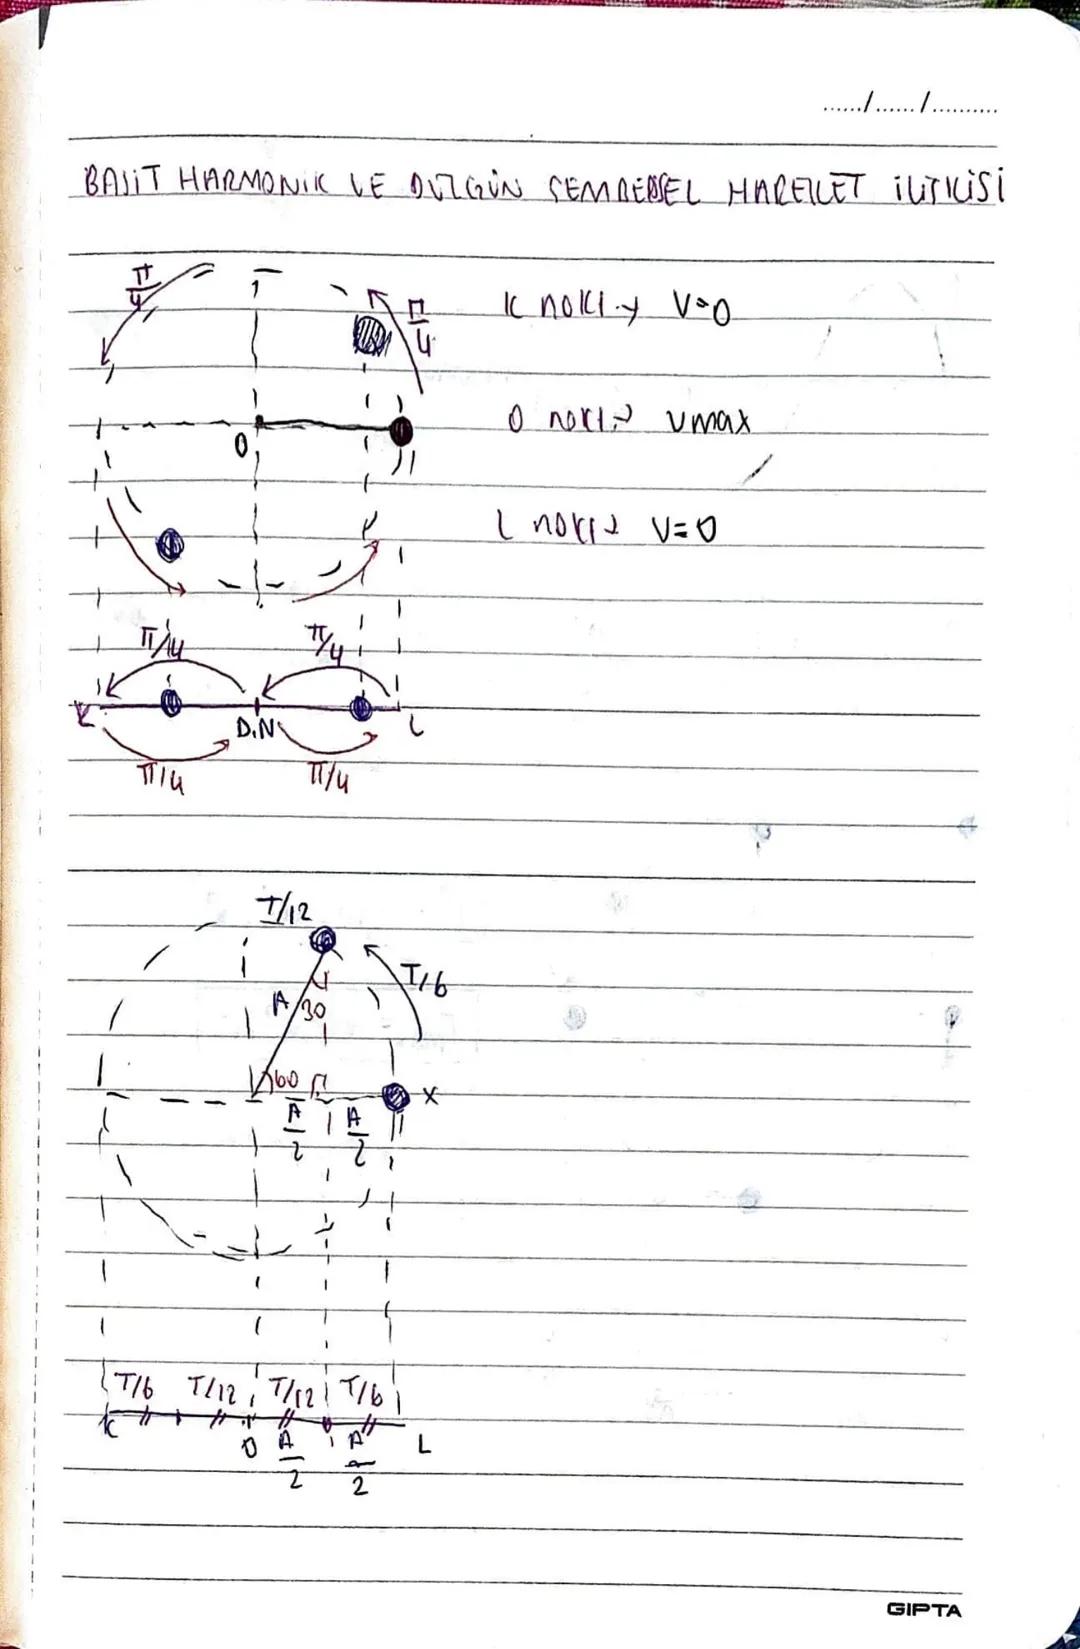 ....../....../..........
BASİT HARMONİK VE DÜZGÜN ÇEMBERSEL HAREKET İLİŞKİSİ
π/4
π/4
K nokt. → V=0
O
O nokt. → Vmax
L nokt → V=0
π/4 π/4
K D.N L
π/4 π/4
T/12
T/6
A 30
60 X
A/2 A/2
T/6 T/12 T/12 T/6
K O A/2 A/2 L
GIPTA